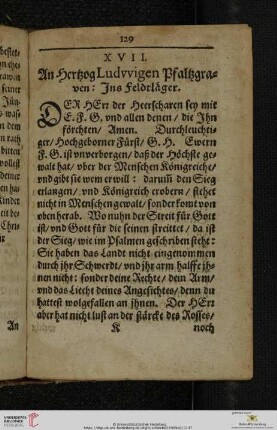 129
XVII.
An Hertzog Ludvvigen Pfaltzgra-
ven: Ins Feldtläger.
DER HErr der Heerscharen sey mit
E. F. G. vnd allen denen / die Ihn
förchten / Amen. Durchleuchti-
ger / Hochgeborner Fürst / G. H. Ewern
F. G. ist vnverborgen / daß der Höchste ge-
walt hat / vber der Menschen Königreiche /
vnd gibt sie wem er will: darumb den Sieg
erlangen / vnd Königreich erobern / stehet
nicht in Menschen gewalt / sonder komt von
oben herab. Wo nuhn der Streit für Gott
ist / vnd Gott für die seinen streittet / da ist
der Sieg / wie im Psalmen geschriben steht:
Sie haben das Landt nicht eingenommen
durch ihr Schwerdt / vnd ihr arm halffe ihn-
nen nicht: sonder deine Rechte / dein Arm /
vnd das Liecht deines Angesichtes / denn du
hattest wolgefallen an ihnen. Der HErr
aber hat nicht lust an der stärcke des Rosses /
K noch
An